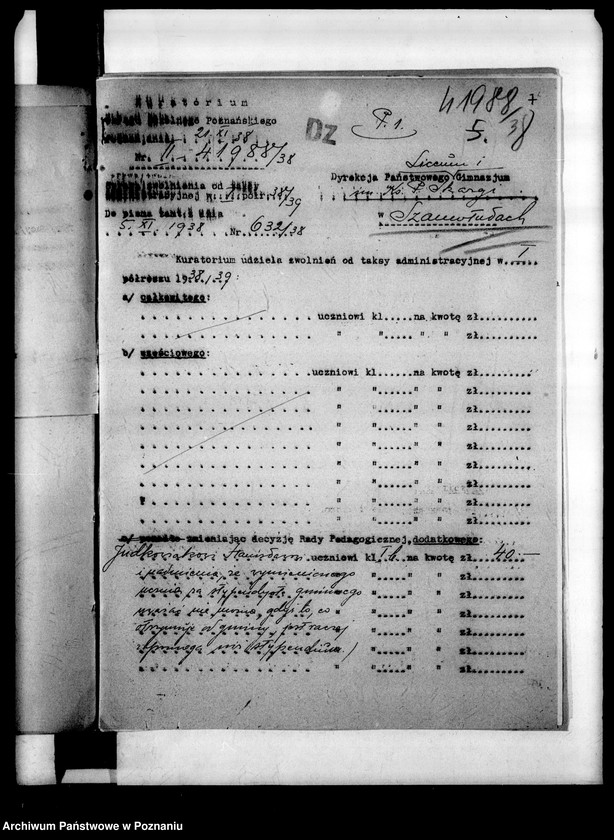 Kuratorium
Okręgu Szkolnego Poznańskiego
Poznań, dnia 21 XI 38
Nr. II-41988/38
Dz
P. 1.
41988/38
5.
7
Liceum i
Dyrekcja Państwowego Gimnazjum
im. Ks. P. Skargi
w Szamotułach
zwolnienia od taksy
administracyjnej w I. półr. 38/39
Do pisma tamt. z dnia
5. XI. 1938 Nr 632/38
Kuratorium udziela zwolnień od taksy administracyjnej w I
półroczu 1938/39:
a/ całkowitego:
uczniowi kl.....na kwotę zł..........
" "......" " zł..........
b/ częściowego:
uczniowi kl.....na kwotę zł..........
" "......" " zł..........
" "......" " zł..........
" "......" " zł..........
" "......" " zł..........
" "......" " zł..........
" "......" " zł..........
" "......" " zł..........
" "......" " zł..........
c/ ponadto zmieniając decyzję Rady Pedagogicznej, dodatkowego:
Judkowiakowi Stanisławowi uczniowi kl. I b. na kwotę zł. 40.—
i nadmienia, że wymienionego " "......" " zł..........
ucznia za stypendystę gminnego " "......" " zł..........
uważać nie można, gdyż to, co " "......" " zł..........
otrzymuje od gminy, jest raczej " "......" " zł..........
zapomogą nie stypendium./ " "......" " zł..........
" "......" " zł..........
Archiwum Państwowe w Poznaniu